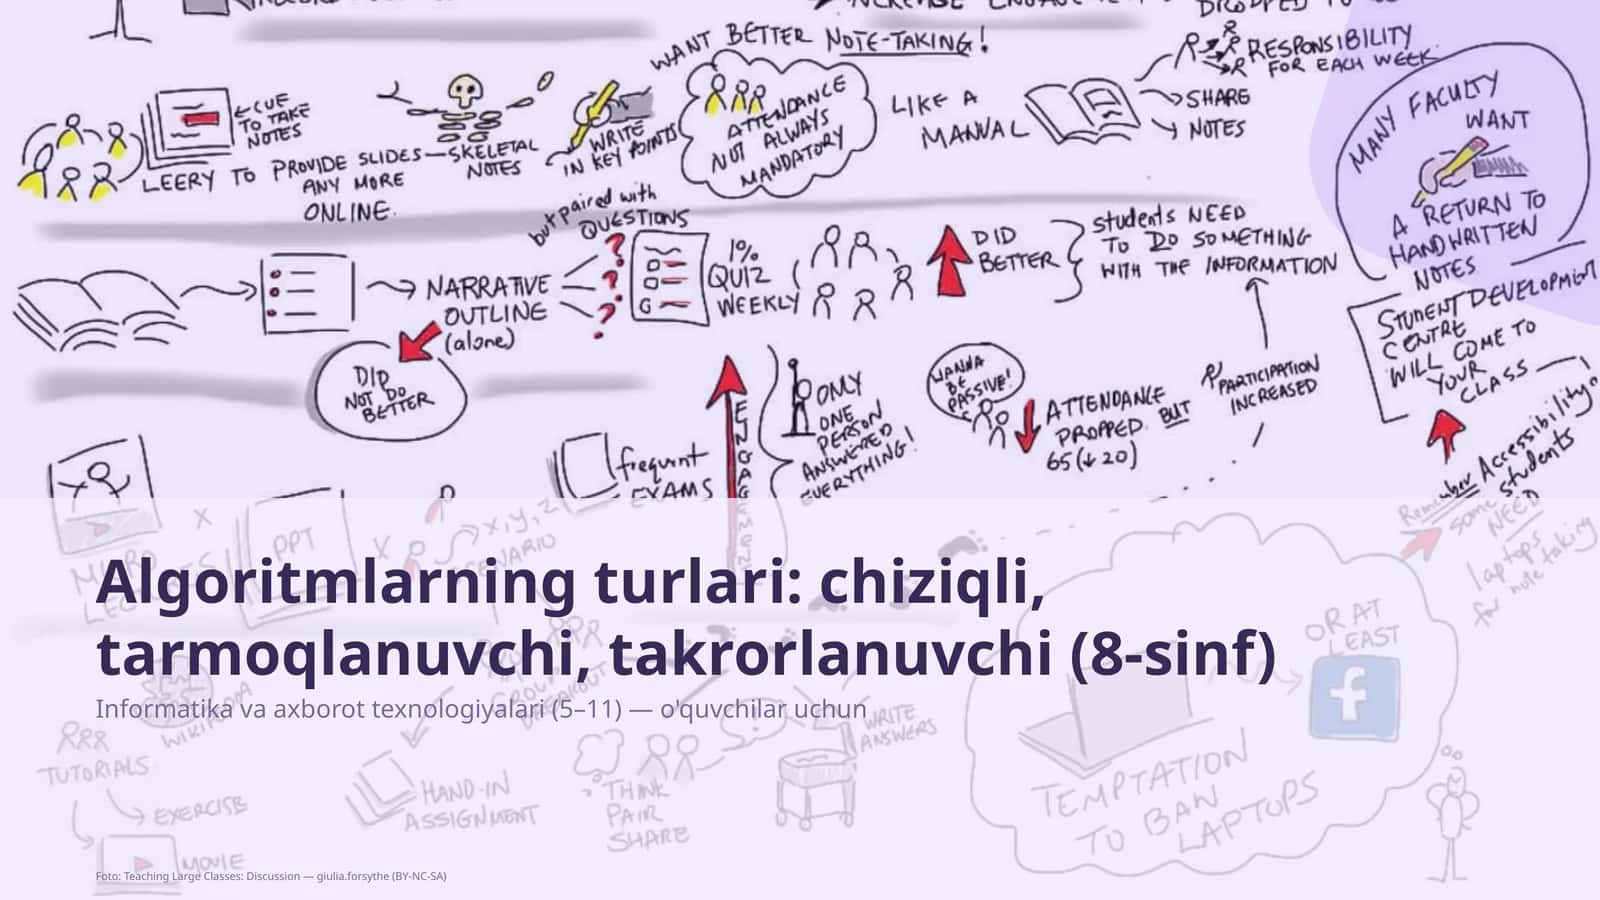 WANT BETTER NOTE-TAKING!
RESPONSIBILITY
FOR EACH WEEK
←CUE
TO TAKE
NOTES
LEERY TO PROVIDE SLIDES—SKELETAL
NOTES
ANY MORE
ONLINE.
WRITE
IN KEY POINTS
ATTENDANCE
NOT ALWAYS
MANDATORY
LIKE A
MANUAL
SHARE
NOTES
MANY FACULTY
WANT
A RETURN TO
HANDWRITTEN
NOTES
but paired with
QUESTIONS
NARRATIVE
OUTLINE
(alone)
1%
QUIZ
WEEKLY
DID
BETTER
students NEED
TO DO SOMETHING
WITH THE INFORMATION
STUDENT DEVELOPMENT
CENTRE
WILL COME TO
YOUR
CLASS
DID
NOT DO
BETTER
frequent
EXAMS
ONLY
ONE
PERSON
ANSWERED
EVERYTHING!
WANNA
BE
PASSIVE!
ATTENDANCE
DROPPED BUT
65(↓20)
PARTICIPATION
INCREASED
Remember Accessibility
some students
NEED
laptops
for note taking
PPT
x, y, z
SCENARIO
Algoritmlarning turlari: chiziqli,
tarmoqlanuvchi, takrorlanuvchi (8-sinf)
Informatika va axborot texnologiyalari (5–11) — o'quvchilar uchun
OR AT
LEAST
f
WIKIPEDIA
TUTORIALS
EXERCISE
MOVIE
HAND-IN
ASSIGNMENT
THINK
PAIR
SHARE
WRITE
ANSWERS
TEMPTATION
TO BAN
LAPTOPS
Foto: Teaching Large Classes: Discussion — giulia.forsythe (BY-NC-SA)